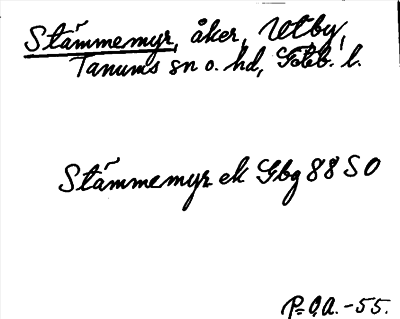 Stämmemyr, åker, Utby,
Tanums sn o. hd, Gbb. l.
Stämmemyr ek Gbg 88 SO
P=O,A. -55.